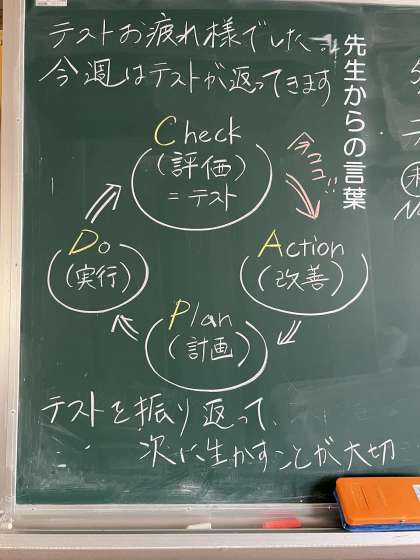 テストお疲れ様でした
今週はテストが返ってきます
先生からの言葉
Check
(評価)
=テスト
今ココ!!
Do
(実行)
Action
(改善)
Plan
(計画)
テストを振り返って、
次に生かすことが大切